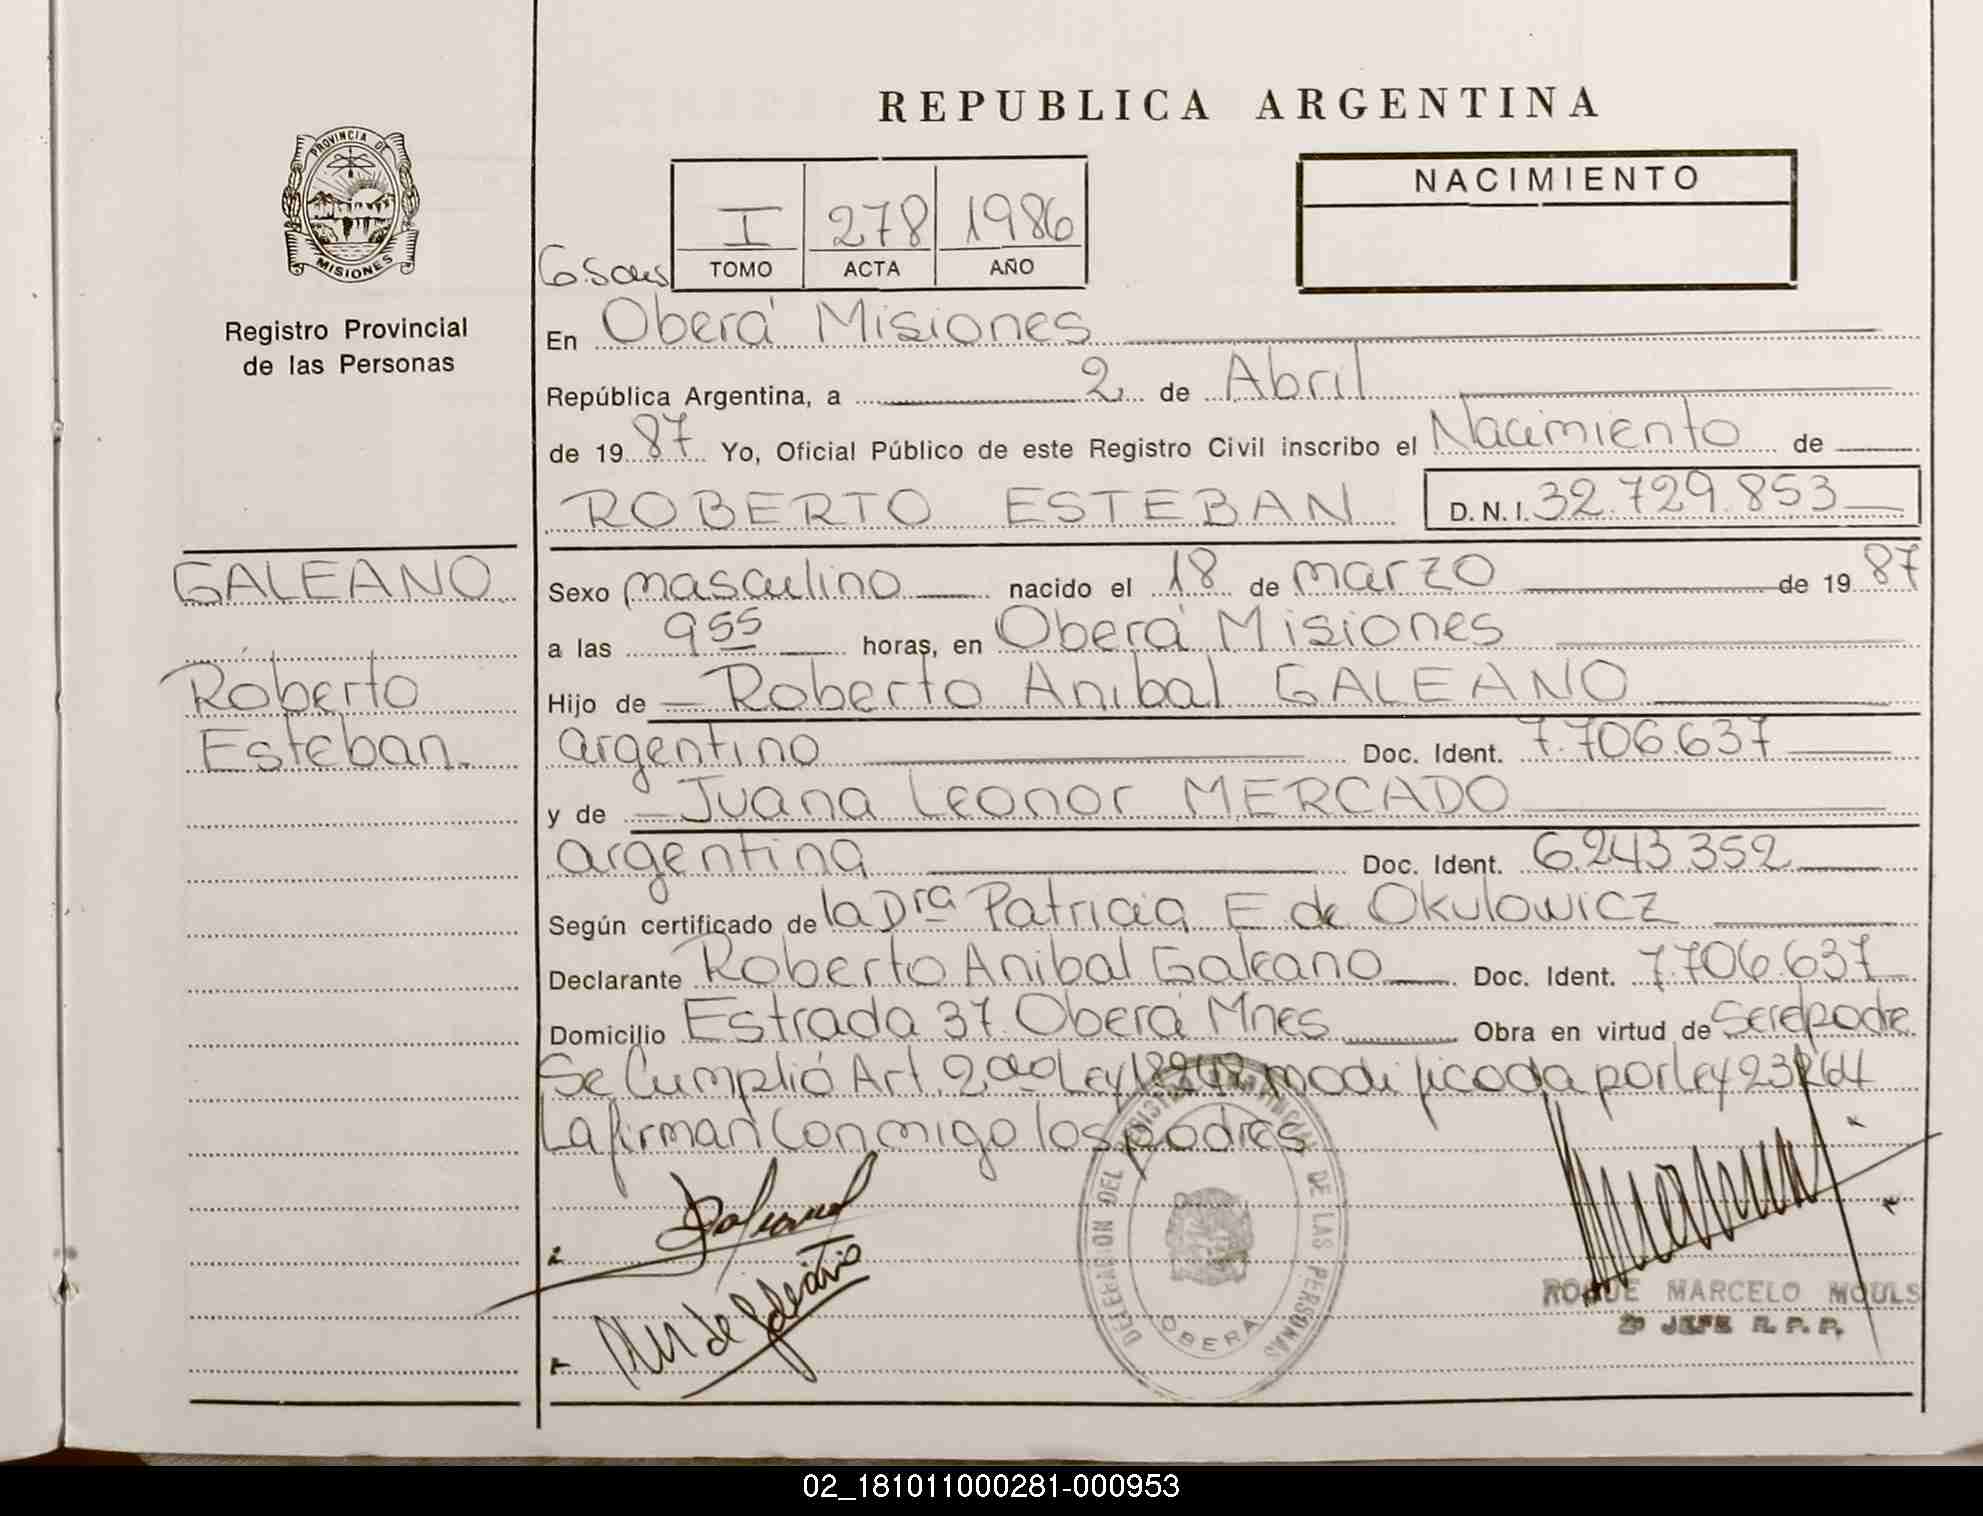 REPUBLICA ARGENTINA
PROVINCIA DE
MISIONES
Registro Provincial
de las Personas
NACIMIENTO
I 278 1986
TOMO ACTA AÑO
En Oberá Misiones
República Argentina, a 2 de Abril
de 19 87 Yo, Oficial Público de este Registro Civil inscribo el Nacimiento de
ROBERTO ESTEBAN D.N.I. 32.729.853
GALEANO
Roberto
Esteban.
Sexo masculino nacido el 18 de marzo de 19 87
a las 9 55 horas, en Oberá Misiones
Hijo de Roberto Anibal GALEANO
argentino Doc. Ident. 7.706.637
y de Juana Leonor MERCADO
argentina Doc. Ident. 6.243.352
Según certificado de la Dra Patricia E de Okulowicz
Declarante Roberto Anibal Galeano Doc. Ident. 7.706.637
Domicilio Estrada 37 Oberá Mnes Obra en virtud de Ser el padre
Se Cumplió Art. 2do Ley 18248 modificada por Ley 23264
La firman Conmigo los padres
DELEGACION DEL REGISTRO PROVINCIAL DE LAS PERSONAS
OBERA
ROQUE MARCELO MOULS
2º JEFE R.P.P.
02_181011000281-000953